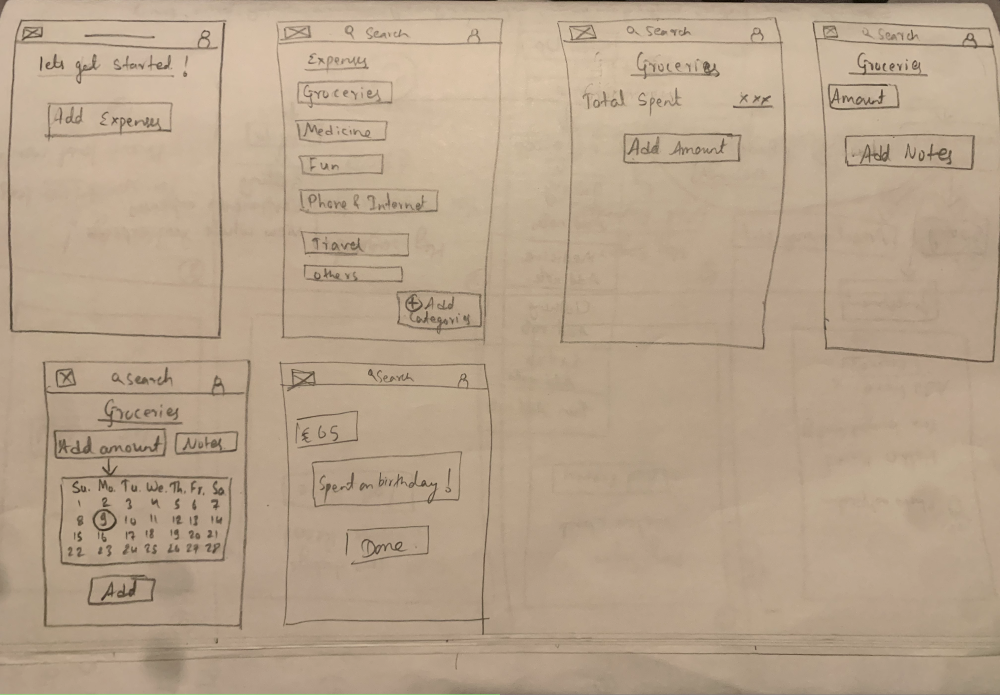 lets get started !
Add Expenses
Search
Expenses
Groceries
Medicine
Fun
Phone & Internet
Travel
others
+ Add
Categories
Search
Groceries
Total Spent xxx
Add Amount
Search
Groceries
Amount
Add Notes
Search
Groceries
Add amount Notes
Su. Mo. Tu. We. Th. Fr. Sa
1 2 3 4 5 6 7
8 9 10 11 12 13 14
15 16 17 18 19 20 21
22 23 24 25 26 27 28
Add
Search
£65
Spent on birthday !
Done